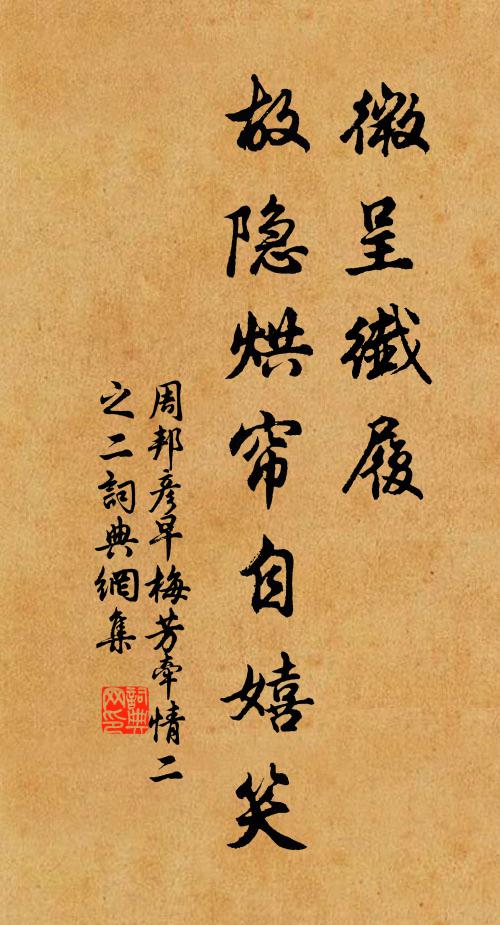 微呈纖履
故隐烘帘自嬉笑
周邦彦早梅芳牵情二
之二詞典網集
詞典网印